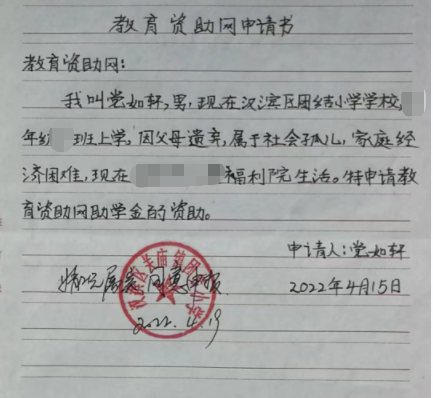 教育资助网申请书
教育资助网：
我叫党如轩，男，现在汉滨区团结小学学校，
年级 班上学，因父母遗弃，属于社会孤儿，家庭经
济困难，现在 福利院生活。特申请教
育资助网助学金的资助。
申请人：党如轩
情况属实 同意申报
2022年4月15日
2022.4.19